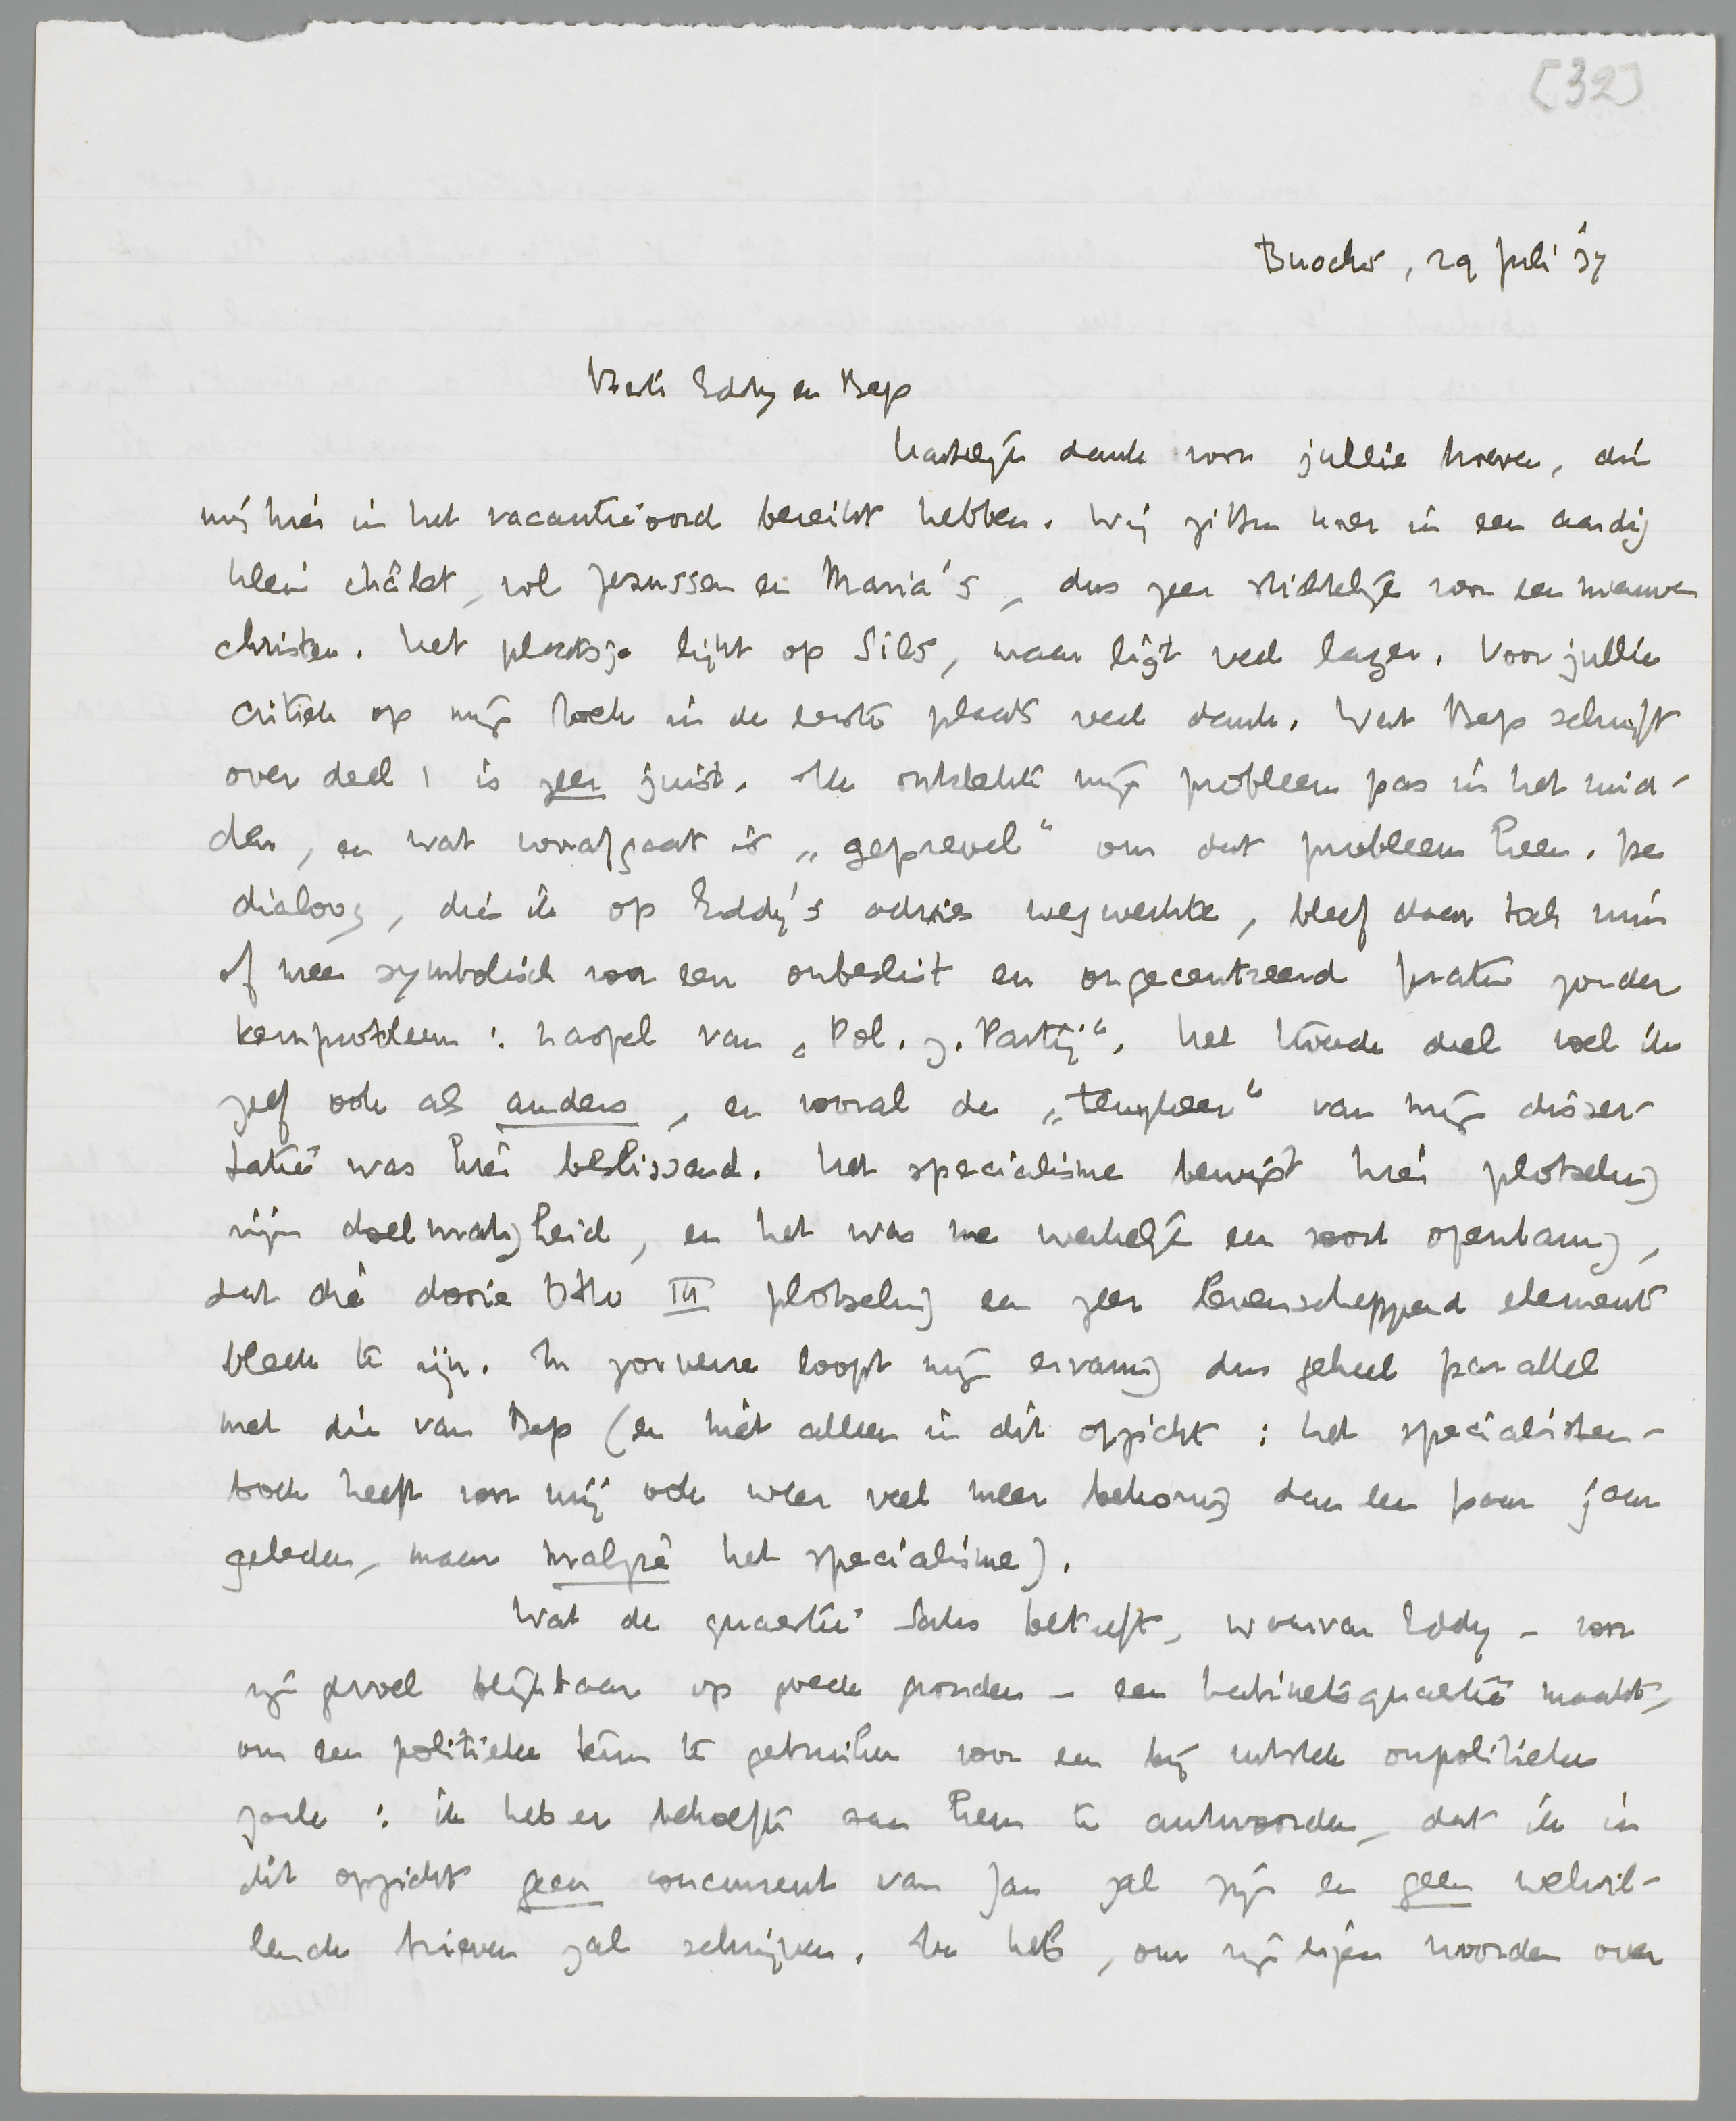 [32]
Buochs, 29 Juli '37
Beste Eddy en Bep
hartelijk dank voor jullie brieven, die
mij hier in het vacantieoord bereikt hebben. Wij zitten hier in een aardig
klein châlet, vol Jezussen en Maria's, dus zeer stichtelijk voor een nieuwen
christen. Het plaatsje lijkt op Sils, maar ligt veel lager. Voor jullie
critiek op mijn boek in de eerste plaats veel dank. Wat Bep schrijft
over deel 1 is zeer juist. Ik ontdekte mijn probleem pas in het mid-
den, en wat voorafgaat is „geprevel" om dat probleem heen. De
dialoog, die ik op Eddy's advies wegwerkte, bleef daar toch min
of meer symbolisch voor een onbeslist en ongecentreerd praten zonder
kernprobleem: naspel van „Pol. z. Partij". Het tweede deel voel ik
zelf ook als anders, en vooral de „tempeleer" van mijn disser-
tatie was hier beslissend. Het specialisme bewijst hier plotseling
zijn doelmatigheid, en het was me werkelijk een soort openbaring,
dat die dooie Otto III plotseling een zeer levenscheppend element
bleek te zijn. In zooverre loopt mijn ervaring dus geheel parallel
met die van Bep (en niet alleen in dit opzicht: het specialisten-
boek heeft voor mij ook weer veel meer bekoring dan een paar jaar
geleden, maar malgré het specialisme).
Wat de quaestie Sahs betreft, waarvan Eddy – voor
zijn gevoel blijkbaar op goede gronden – een kabinetsquaestie maakt,
om een politieke term te gebruiken voor een bij uitstek onpolitieke
zaak: ik heb er behoefte aan hem te antwoorden, dat ik in
dit opzicht geen concurrent van Jan zal zijn en geen welwil-
lende brieven zal schrijven. Ik heb, om zijn eigen woorden over